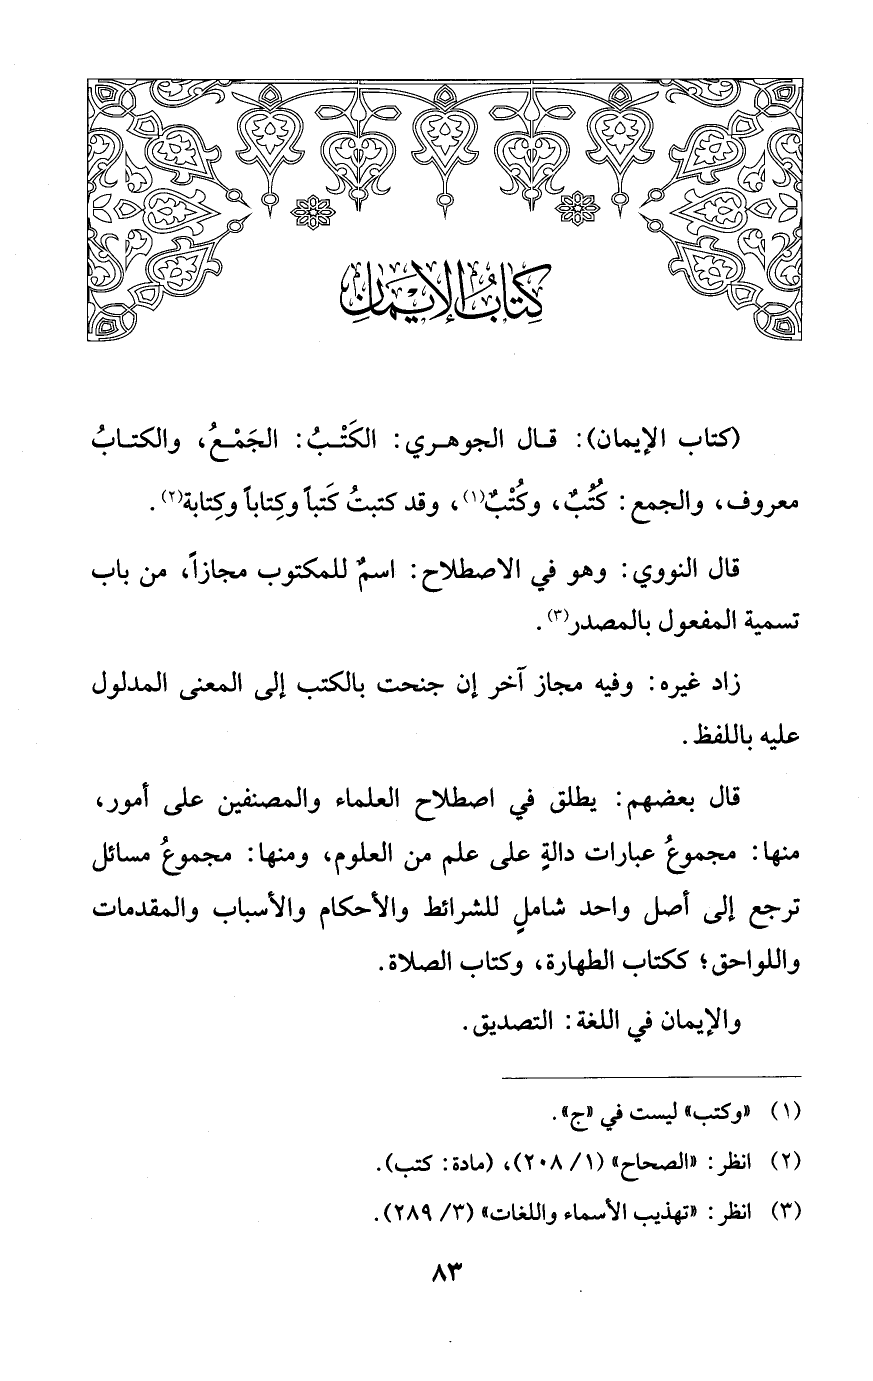 كِتَابُ الإِيْمَانِ
(كتاب الإيمان): قـال الجوهـري: الكَتْـبُ: الجَمْـعُ، والكتـابُ
معروف، والجمع: كُتُبٌ، وكُتْبٌ(١)، وقد كتبتُ كَتباً وكِتاباً وكِتابة(٢).
قال النووي: وهو في الاصطلاح: اسمٌ للمكتوب مجازاً، من باب
تسمية المفعول بالمصدر(٣).
زاد غيره: وفيه مجاز آخر إن جنحت بالكتب إلى المعنى المدلول
عليه باللفظ.
قال بعضهم: يطلق في اصطلاح العلماء والمصنفين على أمور،
منها: مجموعُ عبارات دالةٍ على علم من العلوم، ومنها: مجموعُ مسائل
ترجع إلى أصل واحد شاملٍ للشرائط والأحكام والأسباب والمقدمات
واللواحق؛ ككتاب الطهارة، وكتاب الصلاة.
والإيمان في اللغة: التصديق.
(١) «وكتب» ليست في «ج».
(٢) انظر: «الصحاح» (١/ ٢٠٨)، (مادة: كتب).
(٣) انظر: «تهذيب الأسماء واللغات» (٣/ ٢٨٩).
٨٣